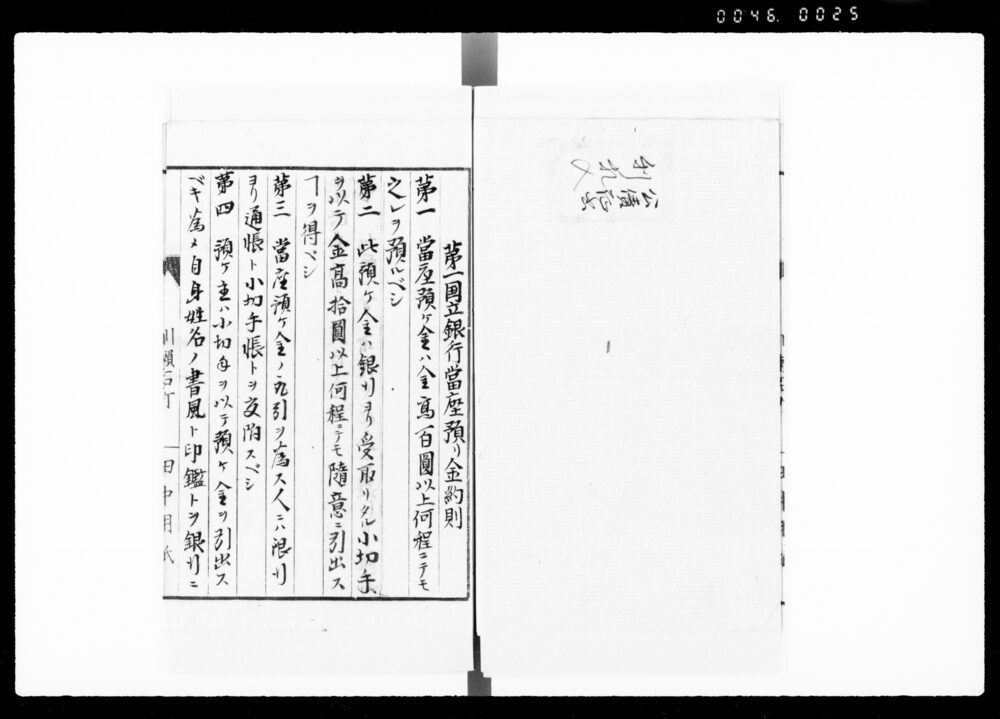 0046. 0025
第一国立銀行當座預リ金約則
第一 當座預ケ金ハ金高百圓以上何程ニテモ
之レヲ預ルベシ
第二 此預ケ金ハ銀行ヨリ受取リタル小切手
ヲ以テ金高拾圓以上何程ニテモ隨意ニ引出ス
ヿヲ得ベシ
第三 當座預ケ金ノ取引ヲ為ス人ニハ銀行
ヨリ通帳ト小切手帳トヲ交附スベシ
第四 預ケ主ハ小切手ヲ以テ預ケ金ヲ引出ス
ベキ為メ自身姓名ノ書風ト印鑑トヲ銀行ニ
田中用紙